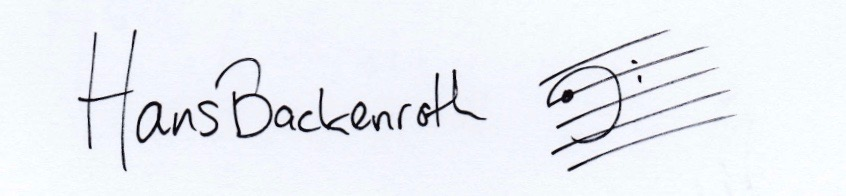 Hans Backenroth